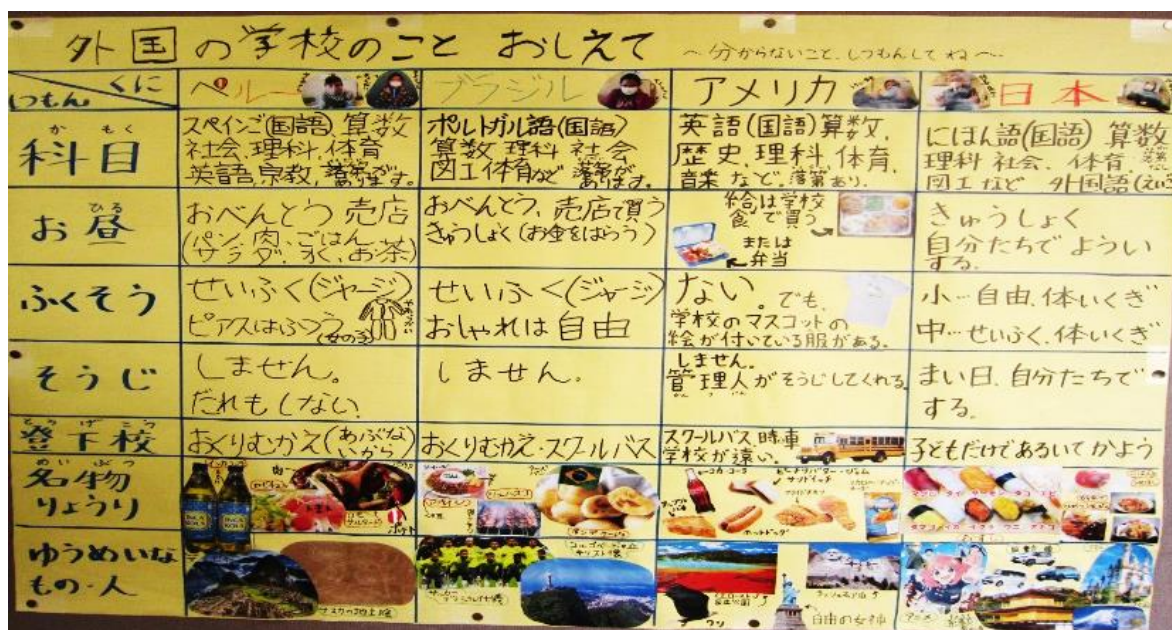 外国の学校のこと おしえて
～分からないこと、しつもんしてね～
くに
しつもん
ペルー
ブラジル
アメリカ
日本
かもく
科目
スペインご(国語)、算数
社会、理科、体育
英語、宗教、落第があります。
ポルトガル語(国語)
算数 理科 社会
図工 体育など 落第があります。
英語(国語)算数、
歴史、理科、体育、
音楽 など。落第あり。
にほん語(国語) 算数
理科 社会、体育
図工 など 外国語
ひる
お昼
おべんとう 売店
(パン、肉、ごはん
サラダ、水、お茶)
おべんとう、売店で買う
きゅうしょく(お金をはらう)
給食は学校で買う
または
弁当
きゅうしょく
自分たちで ようい
する。
ふくそう
せいふく(ジャージ)
ピアスはふつう
(女の子)
せいふく(ジャージ)
おしゃれは自由
ない。でも、
学校のマスコットの
絵が付いている服がある。
小…自由、体いくぎ
中…せいふく、体いくぎ
そうじ
しません。
だれもしない。
しません。
しません。
管理人がそうじしてくれる
まい日、自分たちで
する。
とうげこう
登下校
おくりむかえ(あぶないから)
おくりむかえ・スクールバス
スクールバス、時々車
学校が遠い。
子どもだけであるいて かよう
めいぶつ
名物
りょうり
INCA KOLA
INCA KOLA
コカ・コーラ
サンドイッチ
ホットドッグ
マグロ タイ サーモン タコ エビ
タマゴ イカ イクラ ウニ
ゆうめいな
もの・人
ナスカの地上絵
コルコバードの丘
キリスト像
サッカー
自由の女神